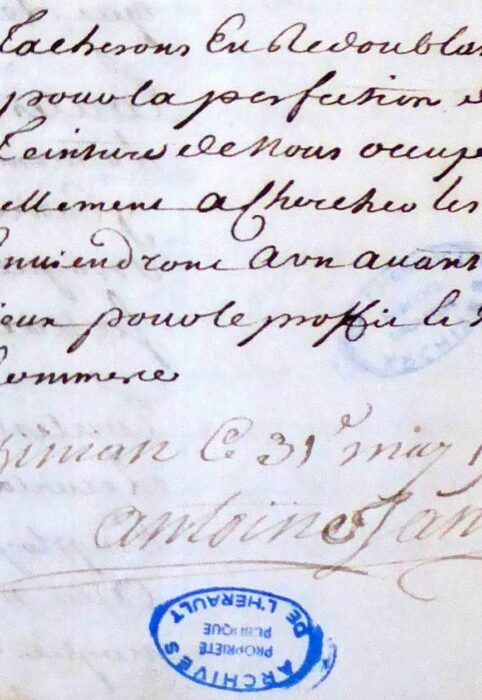 Tacherons En Redoubla
pour la perfection d
Teinture de Nous occupe
ellement a Chercher les
nviendront a un avant
ieux pour le proffit le
Commerce
le 31e may
antoine Jan
ARCHIVES DE L'HERAULT
PROPRIÉTÉ
PUBLIQUE